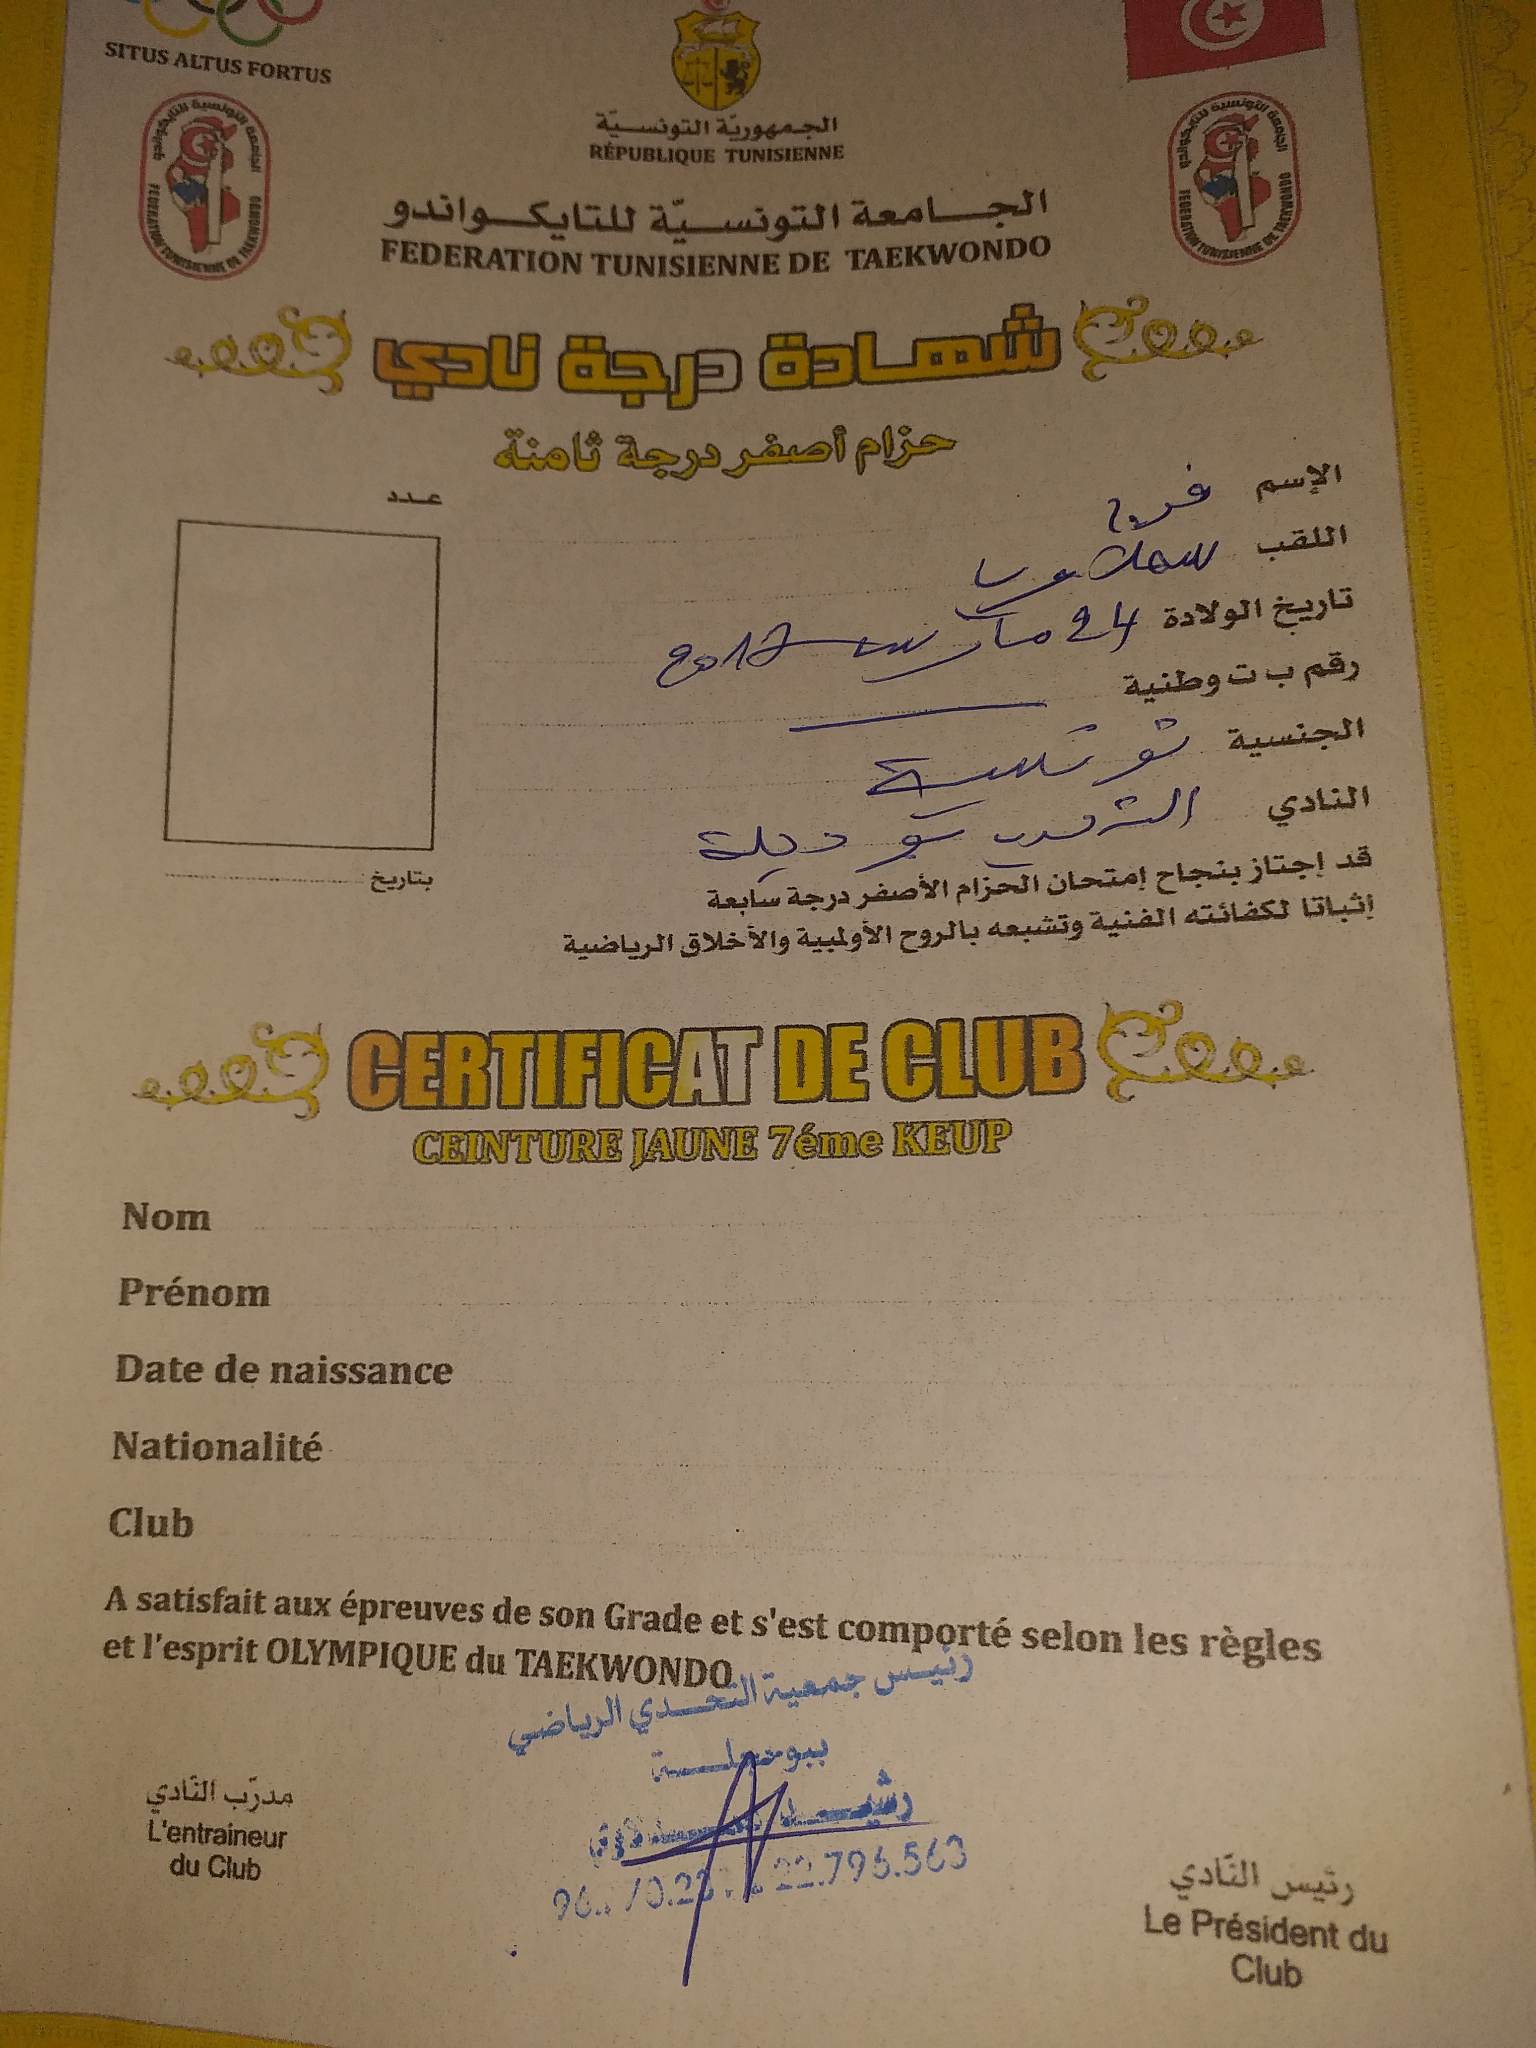 SITUS ALTUS FORTUS
الجمهوريّة التونسيّة
RÉPUBLIQUE TUNISIENNE
الجامعة التونسية للتايكواندو
FEDERATION TUNISIENNE DE TAEKWONDO
الجامعة التونسيّة للتايكواندو
FEDERATION TUNISIENNE DE TAEKWONDO
الجامعة التونسية للتايكواندو
FEDERATION TUNISIENNE DE TAEKWONDO
شهادة درجة نادي
حزام أصفر درجة ثامنة
عدد
الإسم
اللقب
تاريخ الولادة 24 مارس 2017
رقم ب ت وطنية
الجنسية تونسية
النادي
بتاريخ
قد إجتاز بنجاح إمتحان الحزام الأصفر درجة سابعة
إثباتا لكفائته الفنية وتشبعه بالروح الأولمبية والأخلاق الرياضية
CERTIFICAT DE CLUB
CEINTURE JAUNE 7éme KEUP
Nom
Prénom
Date de naissance
Nationalité
Club
A satisfait aux épreuves de son Grade et s'est comporté selon les règles
et l'esprit OLYMPIQUE du TAEKWONDO
رئيس جمعية التحدي الرياضي
رشيد
22.796.563
مدرّب النّادي
L'entraineur
du Club
رئيس النّادي
Le Président du
Club